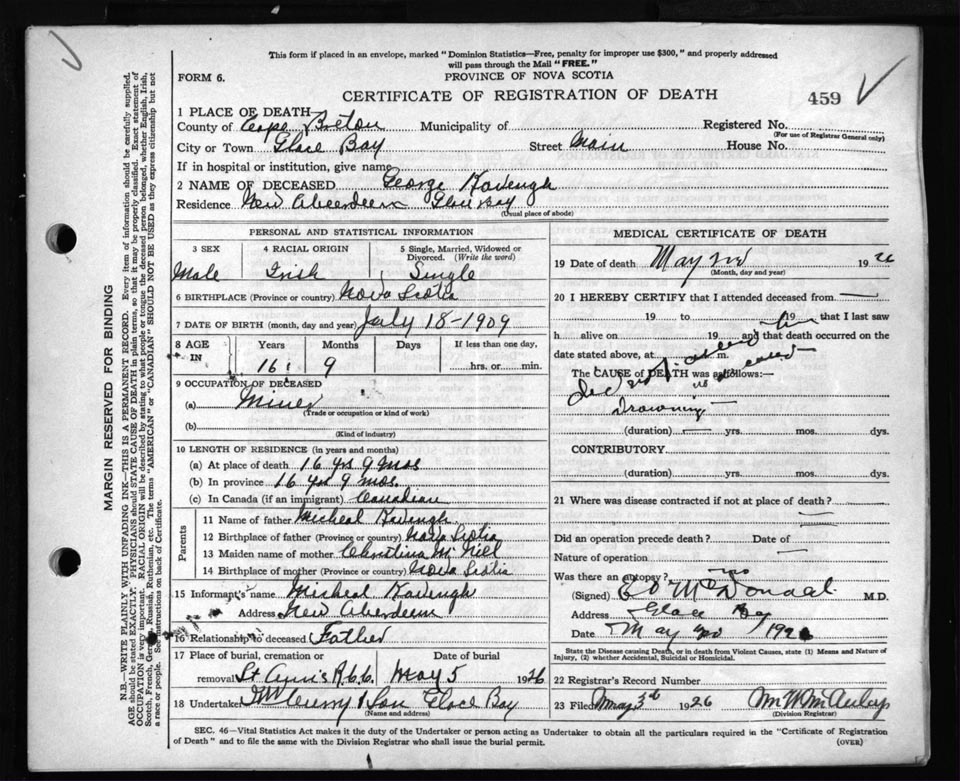 This form if placed in an envelope, marked "Dominion Statistics—Free, penalty for improper use $300," and properly addressed
will pass through the Mail "FREE."
FORM 6.
PROVINCE OF NOVA SCOTIA
CERTIFICATE OF REGISTRATION OF DEATH
459
1 PLACE OF DEATH
County of Cape Breton Municipality of Registered No.
(For use of Registrar General only)
City or Town Glace Bay Street Main House No.
If in hospital or institution, give name
2 NAME OF DECEASED George Kavengh
Residence New Aberdeen Glace Bay
(Usual place of abode)
PERSONAL AND STATISTICAL INFORMATION
3 SEX 4 RACIAL ORIGIN 5 Single, Married, Widowed or
Divorced. (Write the word)
Male Irish Single
6 BIRTHPLACE (Province or country) Nova Scotia
7 DATE OF BIRTH (month, day and year) July 18-1909
8 AGE IN Years Months Days If less than one day,
16 9 hrs. or min.
9 OCCUPATION OF DECEASED
(a) Miner
(Trade or occupation or kind of work)
(b)
(Kind of industry)
10 LENGTH OF RESIDENCE (in years and months)
(a) At place of death 16 yrs 9 mos
(b) In province 16 yrs 9 mos.
(c) In Canada (if an immigrant) Canadian
Parents
11 Name of father Micheal Kavengh
12 Birthplace of father (Province or country) Nova Scotia
13 Maiden name of mother Christina McNiel
14 Birthplace of mother (Province or country) Nova Scotia
15 Informant's name Micheal Kavengh
Address New Aberdeen
16 Relationship to deceased Father
17 Place of burial, cremation or Date of burial
removal St Anns R.C.C. May 5 1926
18 Undertaker Curry & Son Glace Bay
(Name and address)
MEDICAL CERTIFICATE OF DEATH
19 Date of death May 2nd 1926
(Month, day and year)
20 I HEREBY CERTIFY that I attended deceased from
19 to 19 that I last saw
h alive on 19 and that death occurred on
date stated above, at m.
The CAUSE of DEATH was as follows:—
Did not attend
deceased
Drowning
(duration) yrs. mos. dys.
CONTRIBUTORY.
(duration) yrs. mos. dys.
21 Where was disease contracted if not at place of death?
Did an operation precede death? Date of
Nature of operation
Was there an autopsy? no
(Signed) McDonald M.D.
Address Glace Bay
Date May 2nd 1926
State the Disease causing Death, or in death from Violent Causes, state (1) Means and Nature of
Injury, (2) whether Accidental, Suicidal or Homicidal.
22 Registrar's Record Number
23 Filed May 3rd 1926
(Division Registrar)
SEC. 46—Vital Statistics Act makes it the duty of the Undertaker or person acting as Undertaker to obtain all the particulars required in the "Certificate of Registration
of Death" and to file the same with the Division Registrar who shall issue the burial permit.
(OVER)
MARGIN RESERVED FOR BINDING
N.B.—WRITE PLAINLY WITH UNFADING INK—THIS IS A PERMANENT RECORD. Every item of information should be carefully supplied.
AGE should be stated EXACTLY. PHYSICIANS should STATE CAUSE OF DEATH in plain terms, so that it may be properly classified. Exact statement of
OCCUPATION is very important. RACIAL ORIGIN will be described by stating to what people or tongue the deceased person belonged, whether English, Irish,
Scotch, French, German, Russian, Ruthenian, etc. The terms "AMERICAN" or "CANADIAN" SHOULD NOT BE USED as they express citizenship but not
a race or people. See instructions on back of Certificate.